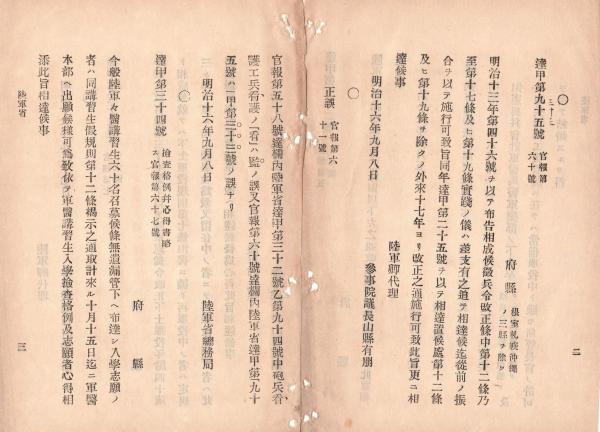 〇
達甲第九十五號 官報第六十號
三十三
府縣 根室札幌沖繩ノ三縣ヲ除ク
明治十三年第四十六號ヲ以テ布告相成候徵兵令改正條中第十二條乃
至第十七條及ヒ第十九條實踐ノ儀ハ差支有之迄テ相達候迄從前ノ振
合ヲ以テ施行可致旨同年達甲第二十五號ヲ以テ相達置候處第十二條
及ヒ第十九條ヲ除クノ外來十七年ヨリ改正之通施行可致此旨更ニ相
達候事
陸軍卿代理
明治十六年九月八日 參事院議長山縣有朋
〇
正誤 官報第六十一號
官報第五十八號達欄內陸軍省達甲第三十二號乙第九十四中砲兵看
護工兵看護ノ「看」ハ「監」ノ誤又官報第六十號達欄內陸軍省達甲第九十
五號ハ「甲第三十三號」ノ誤ナリ
明治十六年九月八日 陸軍省總務局
〇
達甲第三十四號 檢査格例幷心得書略ス 官報第六十七號
府縣
今般陸軍々醫講習生六十名召募候條無遺漏管下ヘ布達シ入學志願ノ
者ハ同講習生假規則第十二條揭示之通取計來ル十月十五日迄ニ軍醫
本部ヘ出願候樣可爲致依テ軍醫講習生入學檢查格例及志願者心得相
添此旨相達候事
陸軍省
二
三